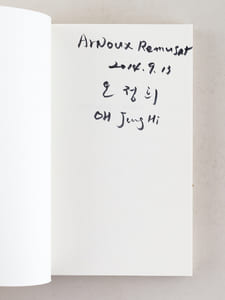 Arnoux Remusat
2014.9.13
오정희
OH Jung Hi